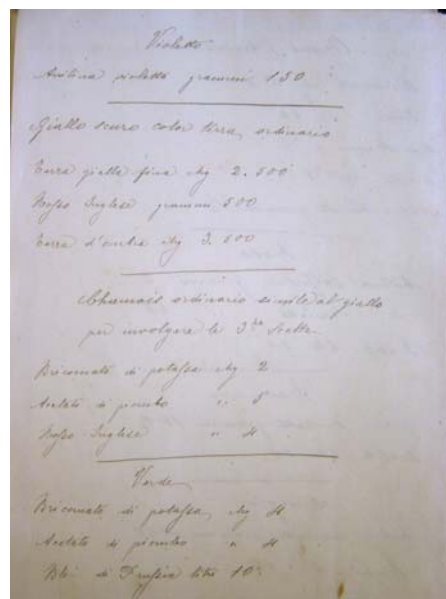 Violetto
Anilina violetto grammi 150
Giallo scuro color terra, ordinario
Terra gialla fina Kg 2.500
Rosso Inglese grammi 500
Terra d'ombra Kg 3.600
Chamois ordinario simile al giallo
per involgere la 3ª Scelta
Bricomato di potassa Kg 2
Acetato di piombo " 5
Rosso Inglese " 4
Verde
Bricomato di potassa, Kg 4
Acetato di piombo " 4
Bleu di Prussia litri 10